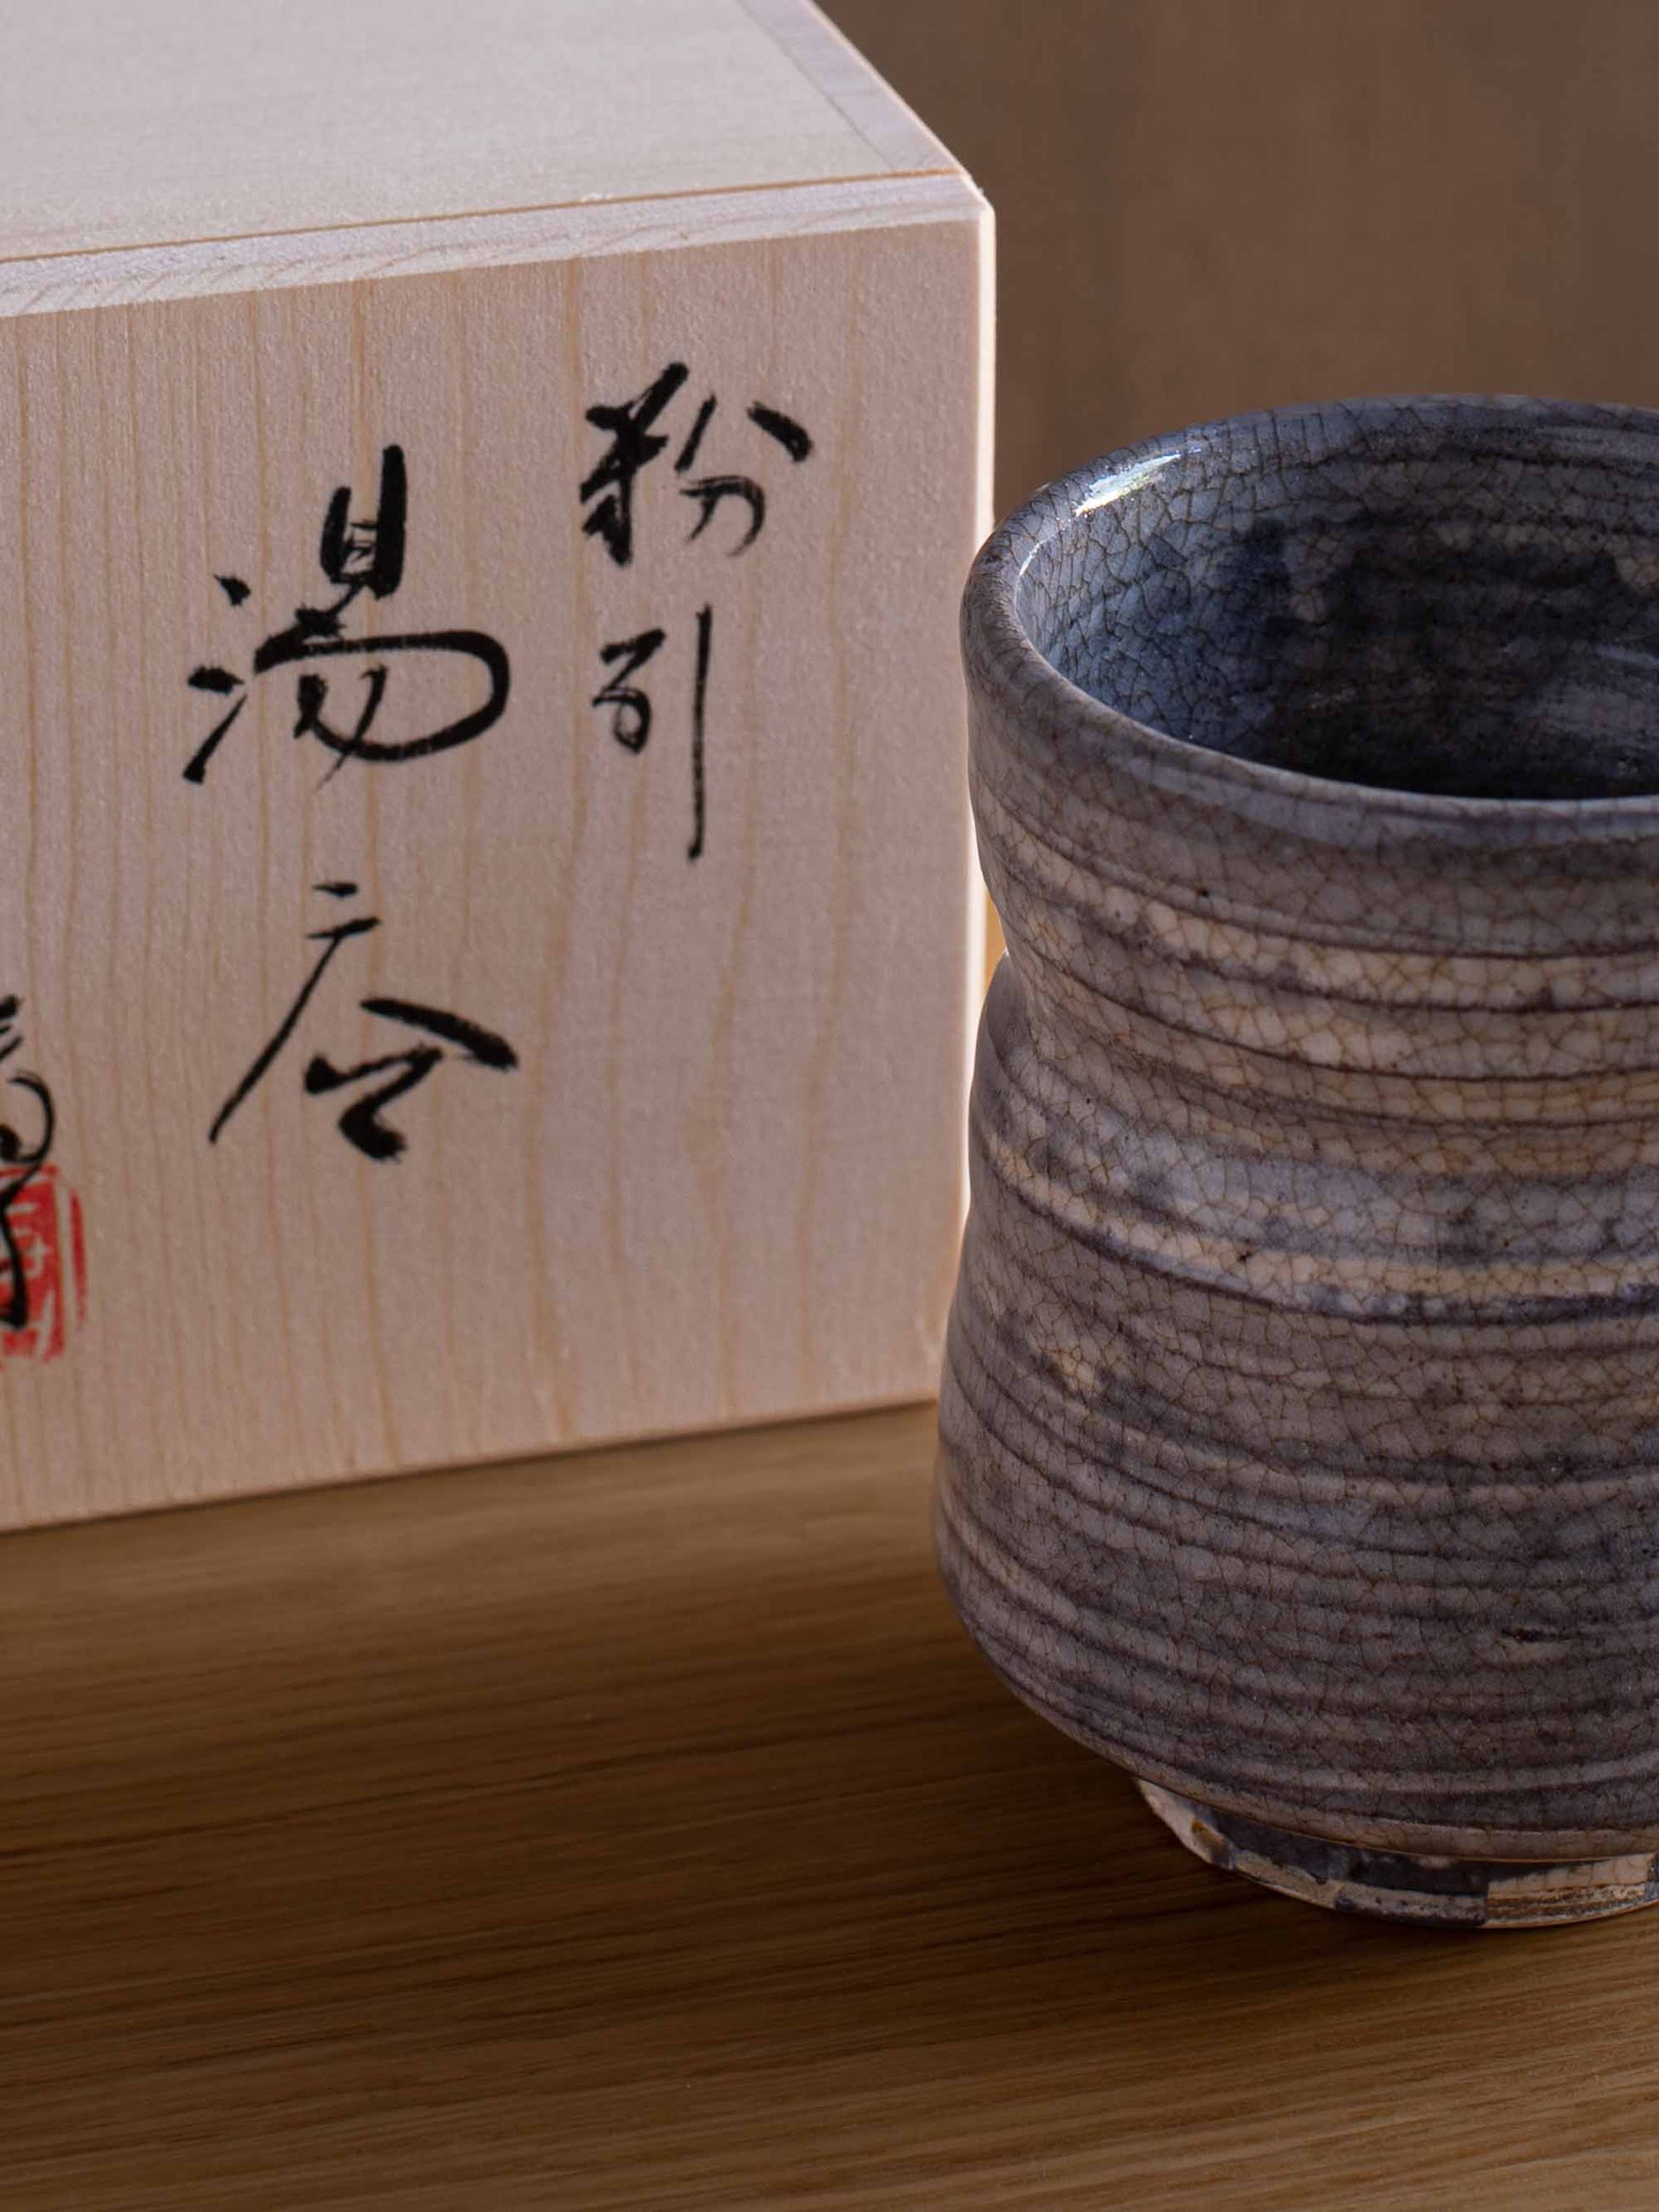 粉引
湯呑